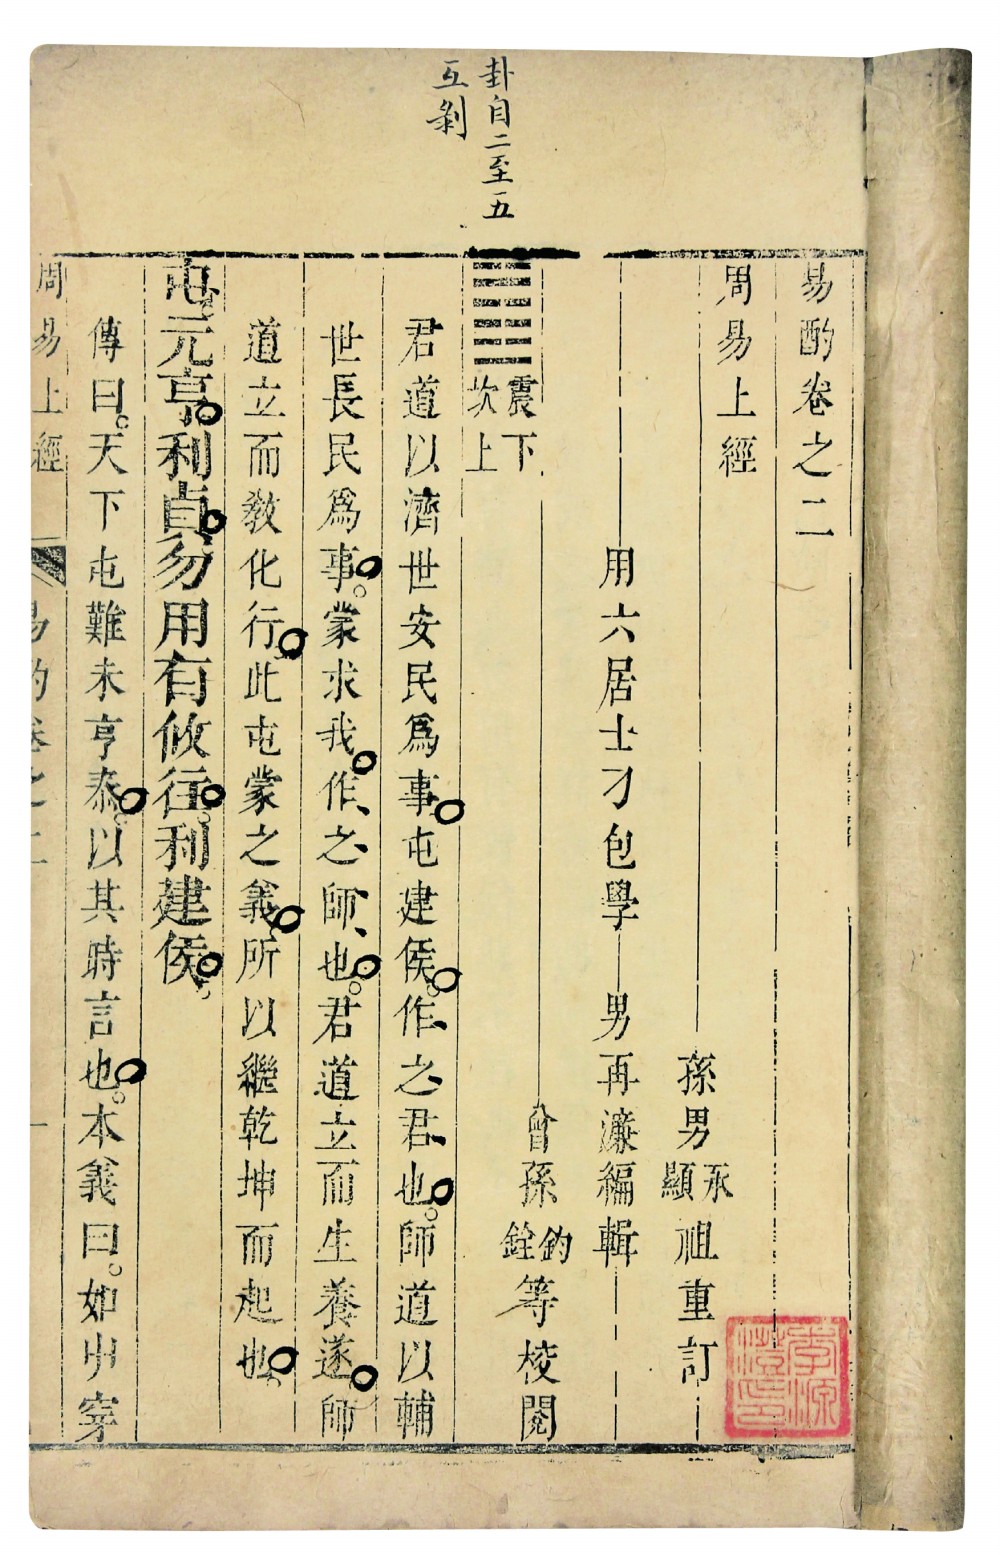 卦自二至五
互剝
易酌卷之二
周易上經
孫男承顯祖重訂
用六居士刁包學 男再濂編輯
曾孫鈞銓等校閱
震下
坎上
君道以濟世安民爲事屯建侯作之君也師道以輔
世長民爲事蒙求我作之師也君道立而生養遂師
道立而教化行此屯蒙之義所以繼乾坤而起也
屯元亨利貞勿用有攸往利建侯
傳曰天下屯難未亨泰以其時言也本義曰如屮穿
周易上經 易酌卷之二 一